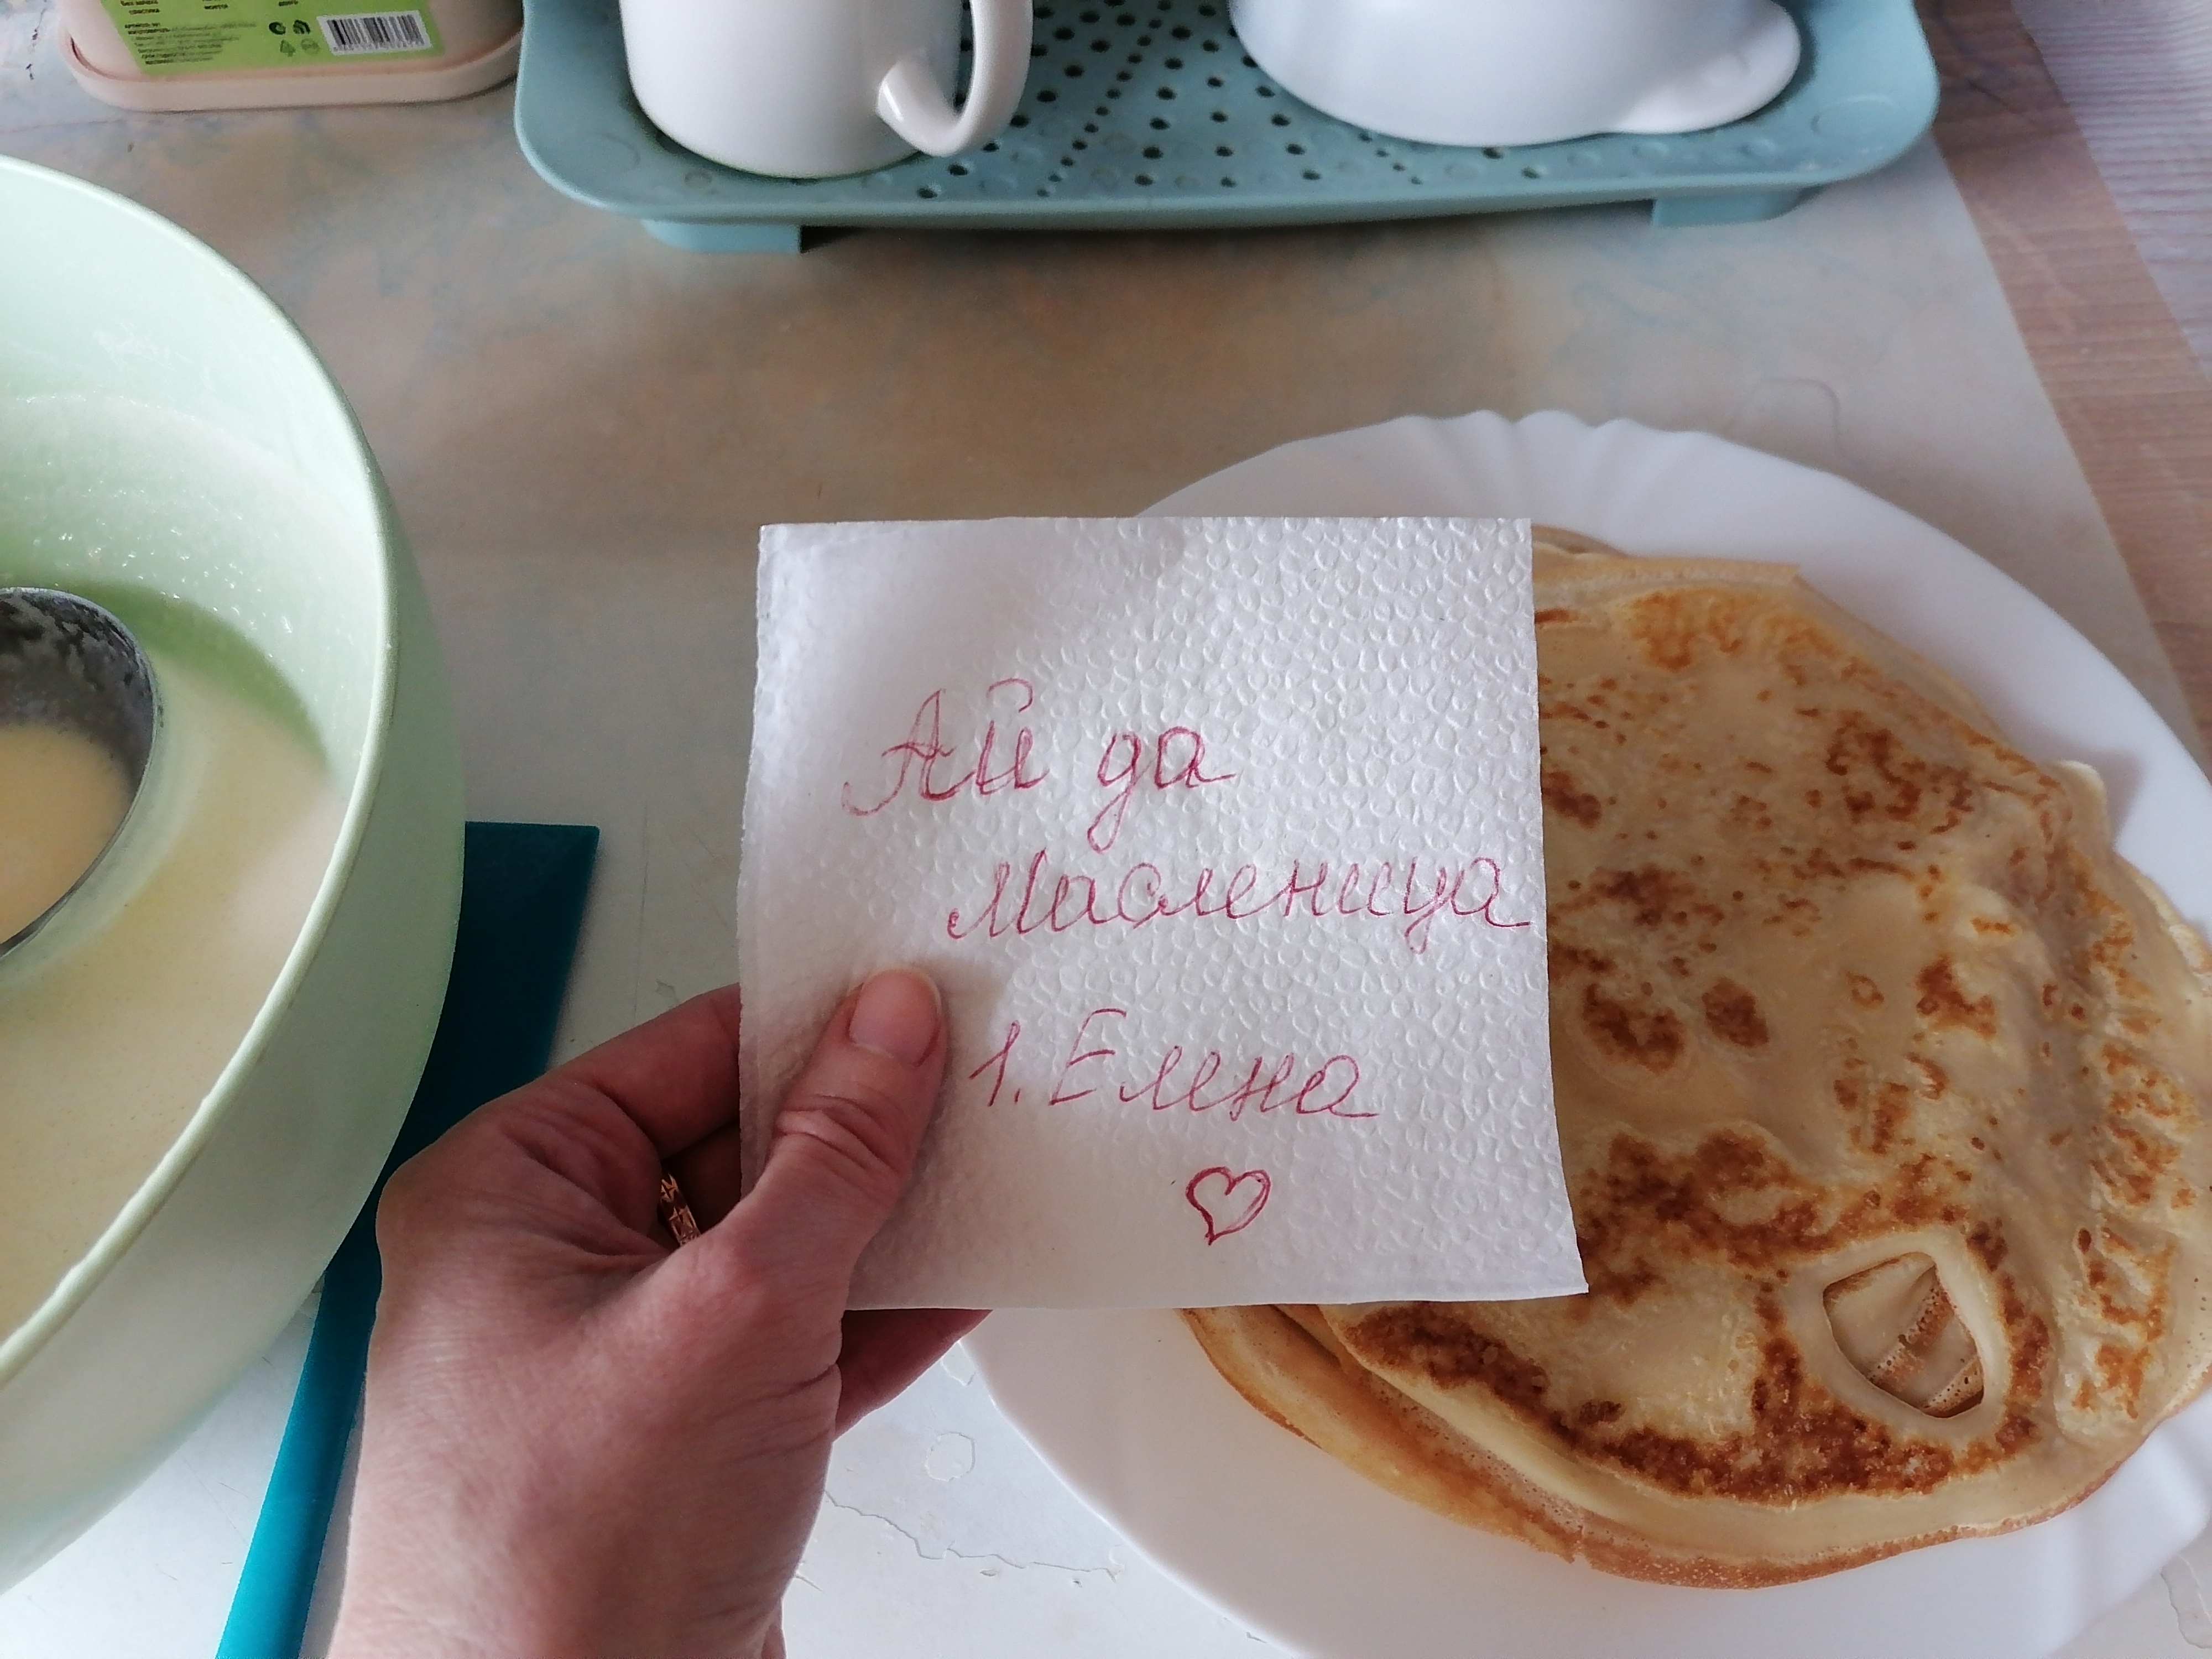 Ай да
Масленица
1. Елена